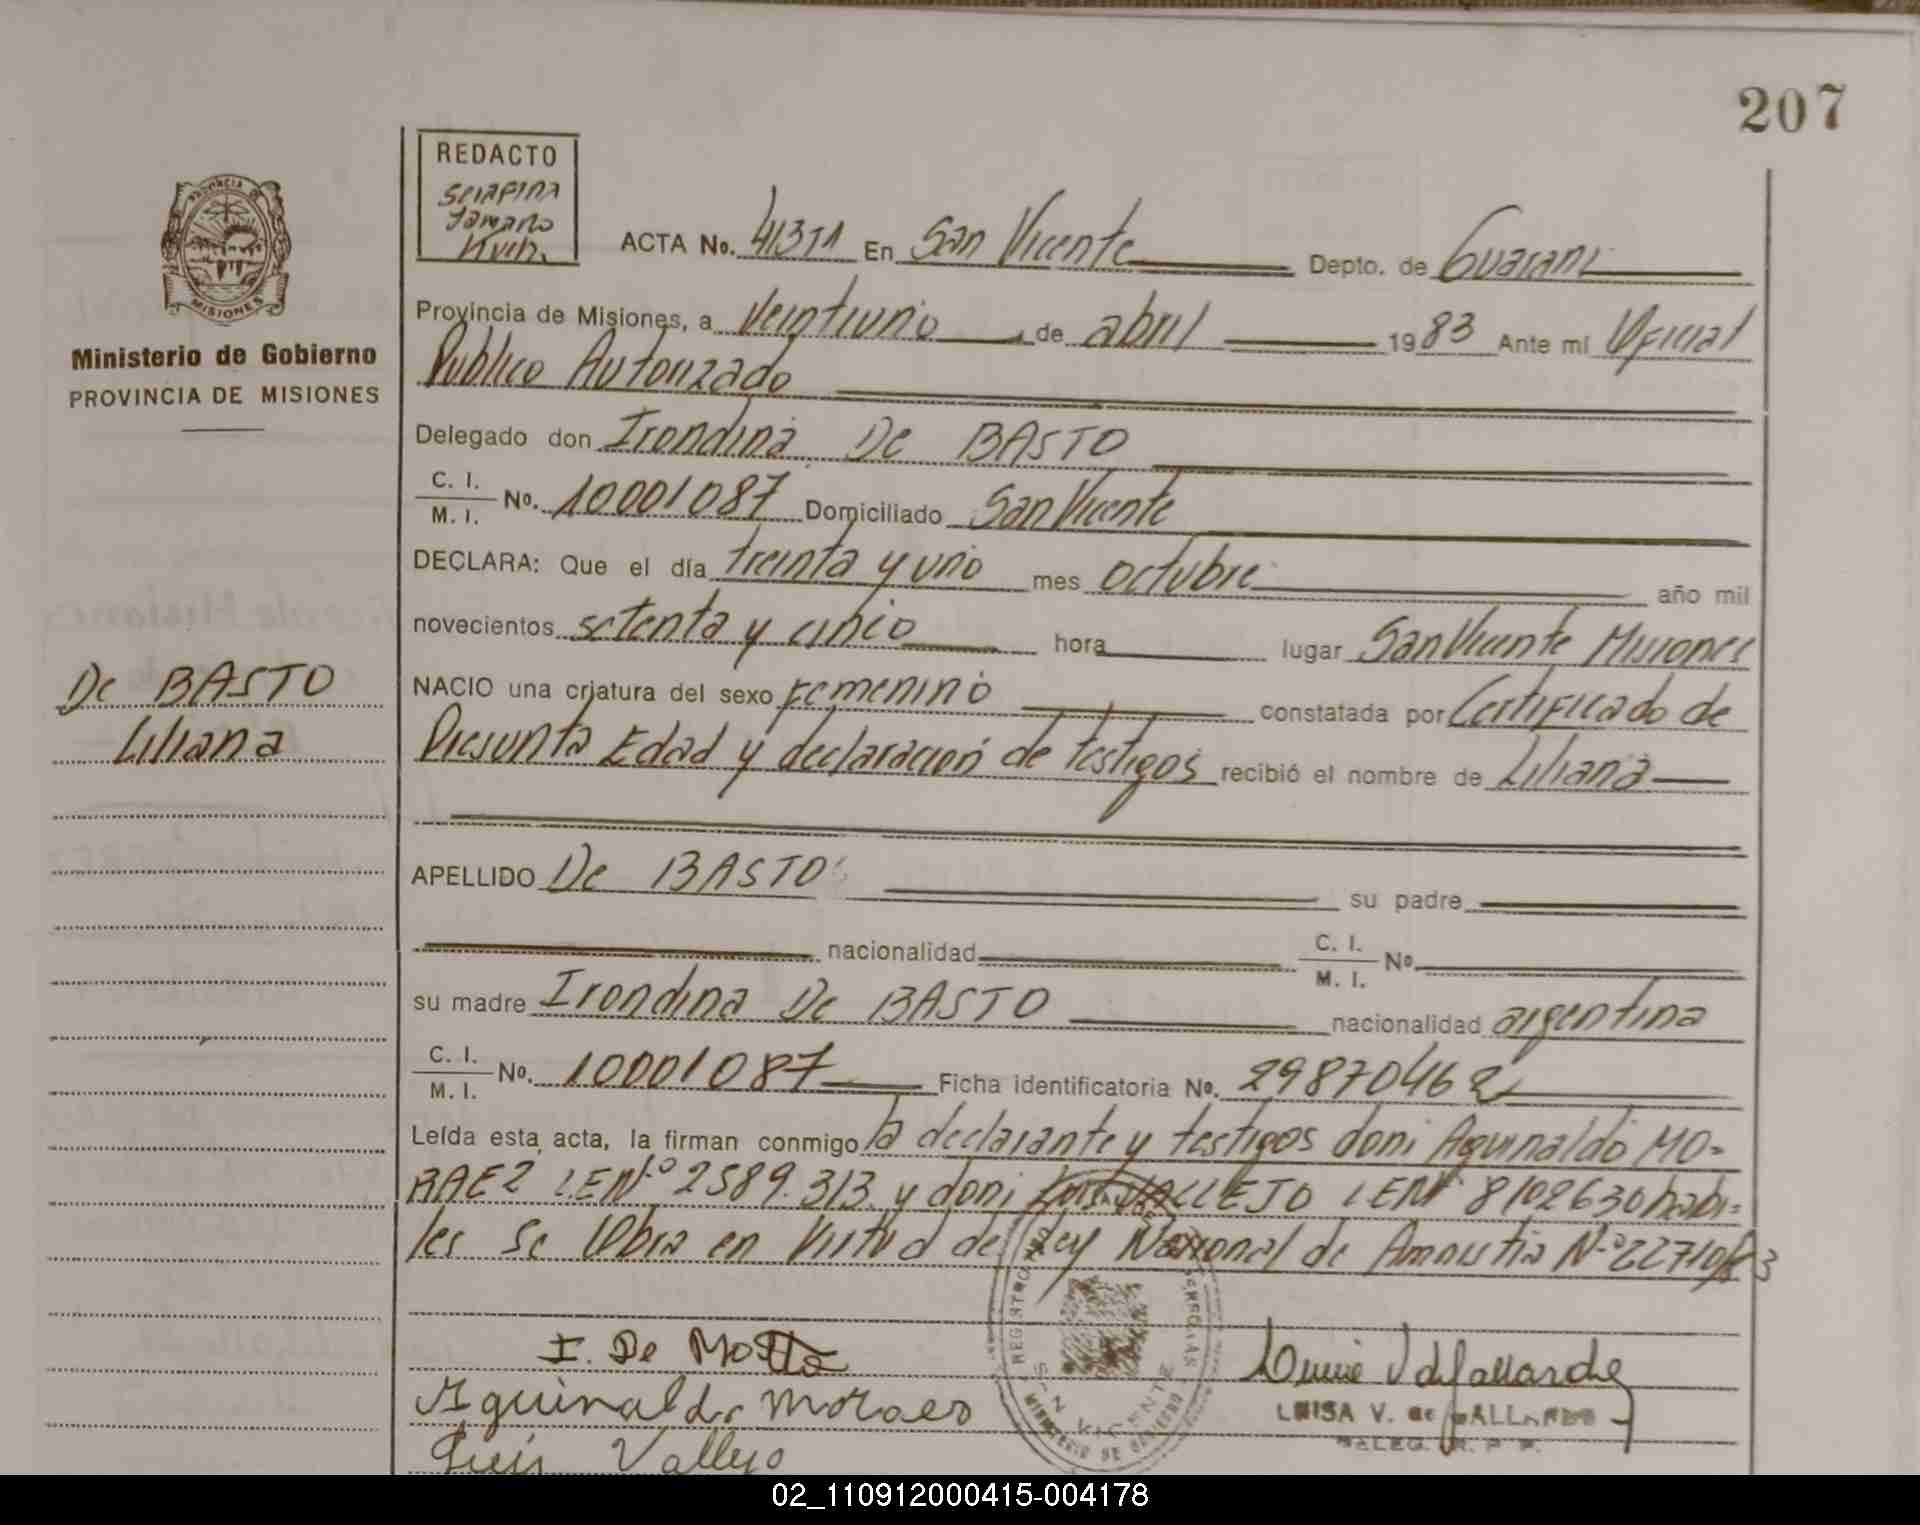 207
REDACTO
SERAFINA
ACTA No. 413T1 En San Vicente Depto. de Guarani
Provincia de Misiones, a Veintiuno de abril 1983 Ante mí Oficial
Publico Autorizado
Delegado don Irondina De BASTO
C. I.
M. I. No. 10001087 Domiciliado San Vicente
DECLARA: Que el día treinta y uno mes octubre año mil
novecientos setenta y cinco hora lugar San Vicente Misiones
NACIO una criatura del sexo femenino constatada por Certificado de
Presunta Edad y declaracion de testigos recibió el nombre de Liliana
APELLIDO De BASTO su padre
nacionalidad C. I. M. I. No.
su madre Irondina De BASTO nacionalidad argentina
C. I.
M. I. No. 10001087 Ficha identificatoria No. 29870462
Leída esta acta, la firman conmigo la declarante y testigos don: Aguinaldo MO-
RAEZ L.E.Nº 2589.313. y don: Luis VALLEJO L.E.Nº 8102630 habi-
les Se Obra en Virtud de Ley Nacional de Amnistia N.º 22710/83
I. De
Aguinaldo Moraes
Luis Vallejo
LUISA V. de GALLARDO
DELEG. R. P. P.
REGISTRO PERSONAS
SAN VICENTE
MINISTERIO DE GOBIERNO
PROVINCIA DE
MISIONES
Ministerio de Gobierno
PROVINCIA DE MISIONES
De BASTO
Liliana
02_110912000415-004178